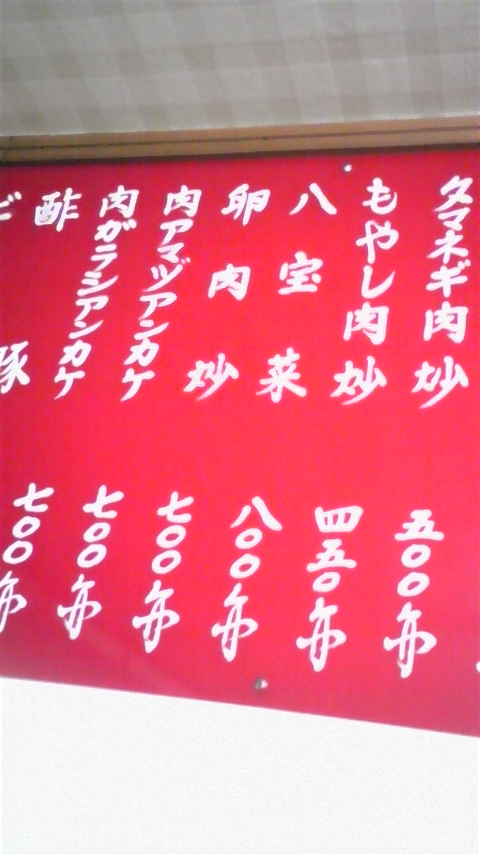 タマネギ肉炒 五〇〇円
もやし肉炒 四五〇円
八宝菜 八〇〇円
卵肉炒 七〇〇円
肉アマヅアンカケ 七〇〇円
肉ガラシアンカケ 七〇〇円
酢豚